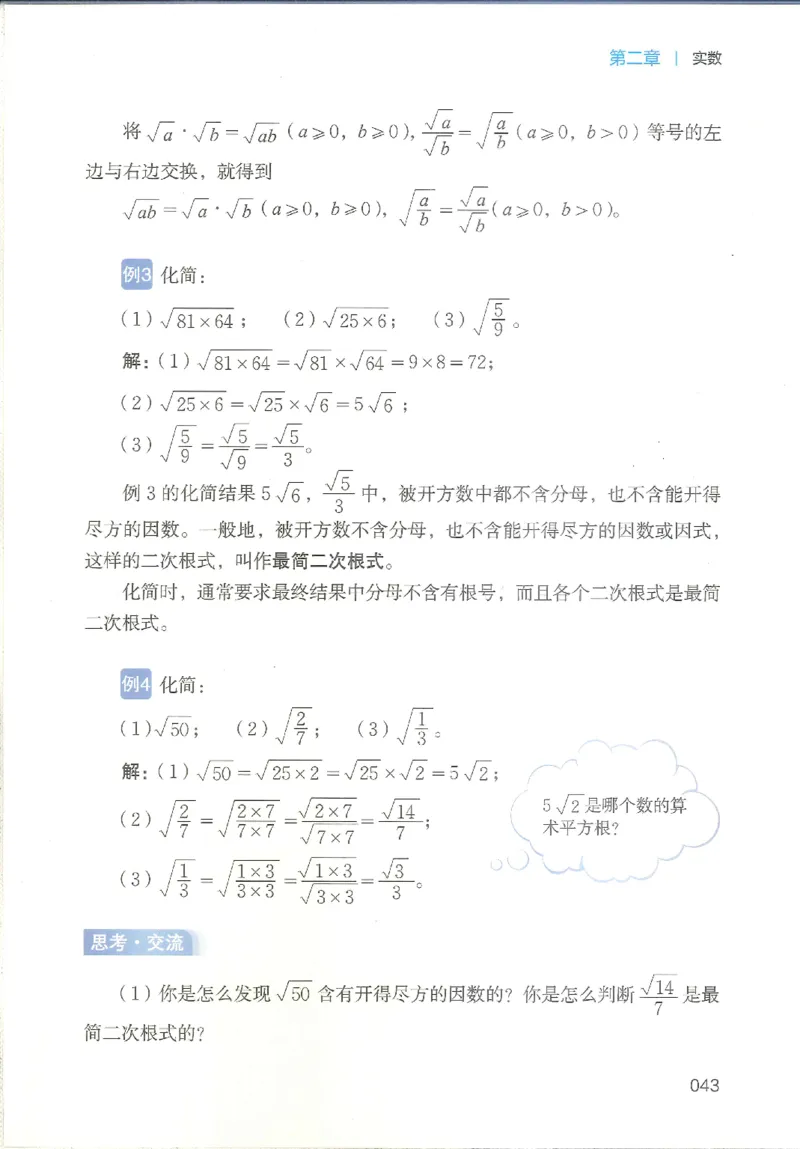 第二章 | 实数
将 √a · √b = √ab (a≥0, b≥0), √a/√b = √(a/b) (a≥0, b>0) 等号的左
边与右边交换，就得到
√ab = √a · √b (a≥0, b≥0), √(a/b) = √a/√b (a≥0, b>0)。
例3 化简：
(1) √(81×64)； (2) √(25×6)； (3) √(5/9)。
解：(1) √(81×64) = √81 × √64 = 9×8 = 72；
(2) √(25×6) = √25 × √6 = 5√6；
(3) √(5/9) = √5/√9 = √5/3。
例 3 的化简结果 5√6，√5/3 中，被开方数中都不含分母，也不含能开得
尽方的因数。一般地，被开方数不含分母，也不含能开得尽方的因数或因式，
这样的二次根式，叫作最简二次根式。
化简时，通常要求最终结果中分母不含有根号，而且各个二次根式是最简
二次根式。
例4 化简：
(1) √50； (2) √(2/7)； (3) √(1/3)。
解：(1) √50 = √(25×2) = √25 × √2 = 5√2；
(2) √(2/7) = √((2×7)/(7×7)) = √(2×7)/√(7×7) = √14/7；
(3) √(1/3) = √((1×3)/(3×3)) = √(1×3)/√(3×3) = √3/3。
5√2 是哪个数的算
术平方根？
思考·交流
(1) 你是怎么发现 √50 含有开得尽方的因数的？你是怎么判断 √14/7 是最
简二次根式的？
043